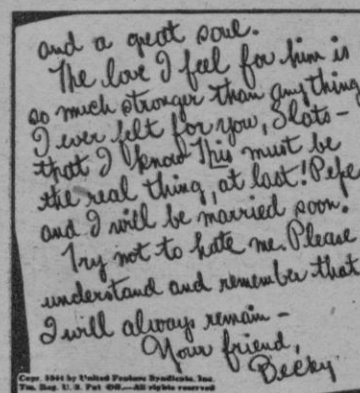 and a great soul.
The love I feel for him is
so much stronger than anything
I ever felt for you, Slats—
that I know This must be
the real thing, at last! Pepe
and I will be married soon.
Try not to hate me. Please
understand and remember that
I will always remain—
Your friend,
Becky
Copr. 1944 by United Feature Syndicate, Inc.
Tm. Reg. U. S. Pat. Off.—All rights reserved